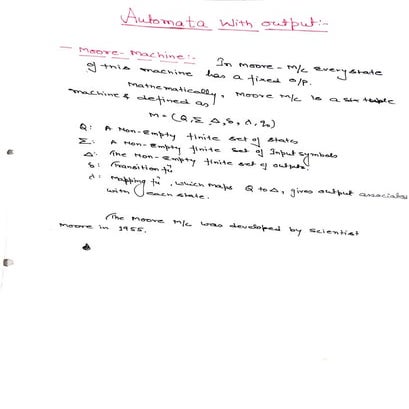 Automata with output:-
- Moore-Machine:- In Moore-M/c every state
of this machine has a fixed o/p.
Mathematically, Moore M/c is a six tuple
machine & defined as
M = (Q, Σ, Δ, δ, λ, q₀)
Q: A Non-Empty finite set of states
Σ: A Non-Empty finite set of Input symbols
Δ: The Non-Empty finite set of outputs.
δ: Transition fⁿ
λ: Mapping fⁿ, which maps Q to Δ, gives output associated
with each state.
The Moore M/c was developed by scientist
Moore in 1955.